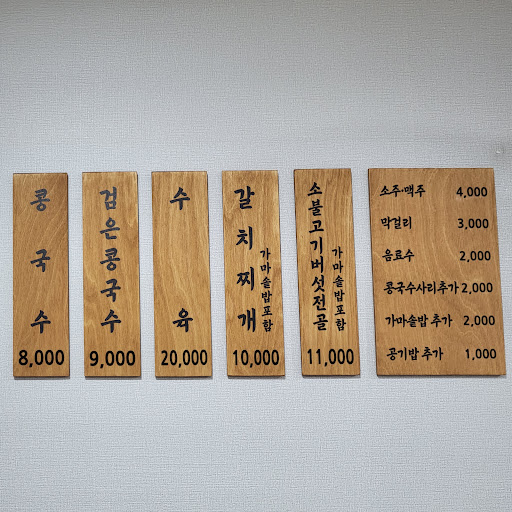 콩국수
8,000
검은콩국수
9,000
수육
20,000
갈치찌개
가마솥밥포함
10,000
소불고기버섯전골
가마솥밥포함
11,000
소주·맥주 4,000
막걸리 3,000
음료수 2,000
콩국수사리추가 2,000
가마솥밥 추가 2,000
공기밥 추가 1,000